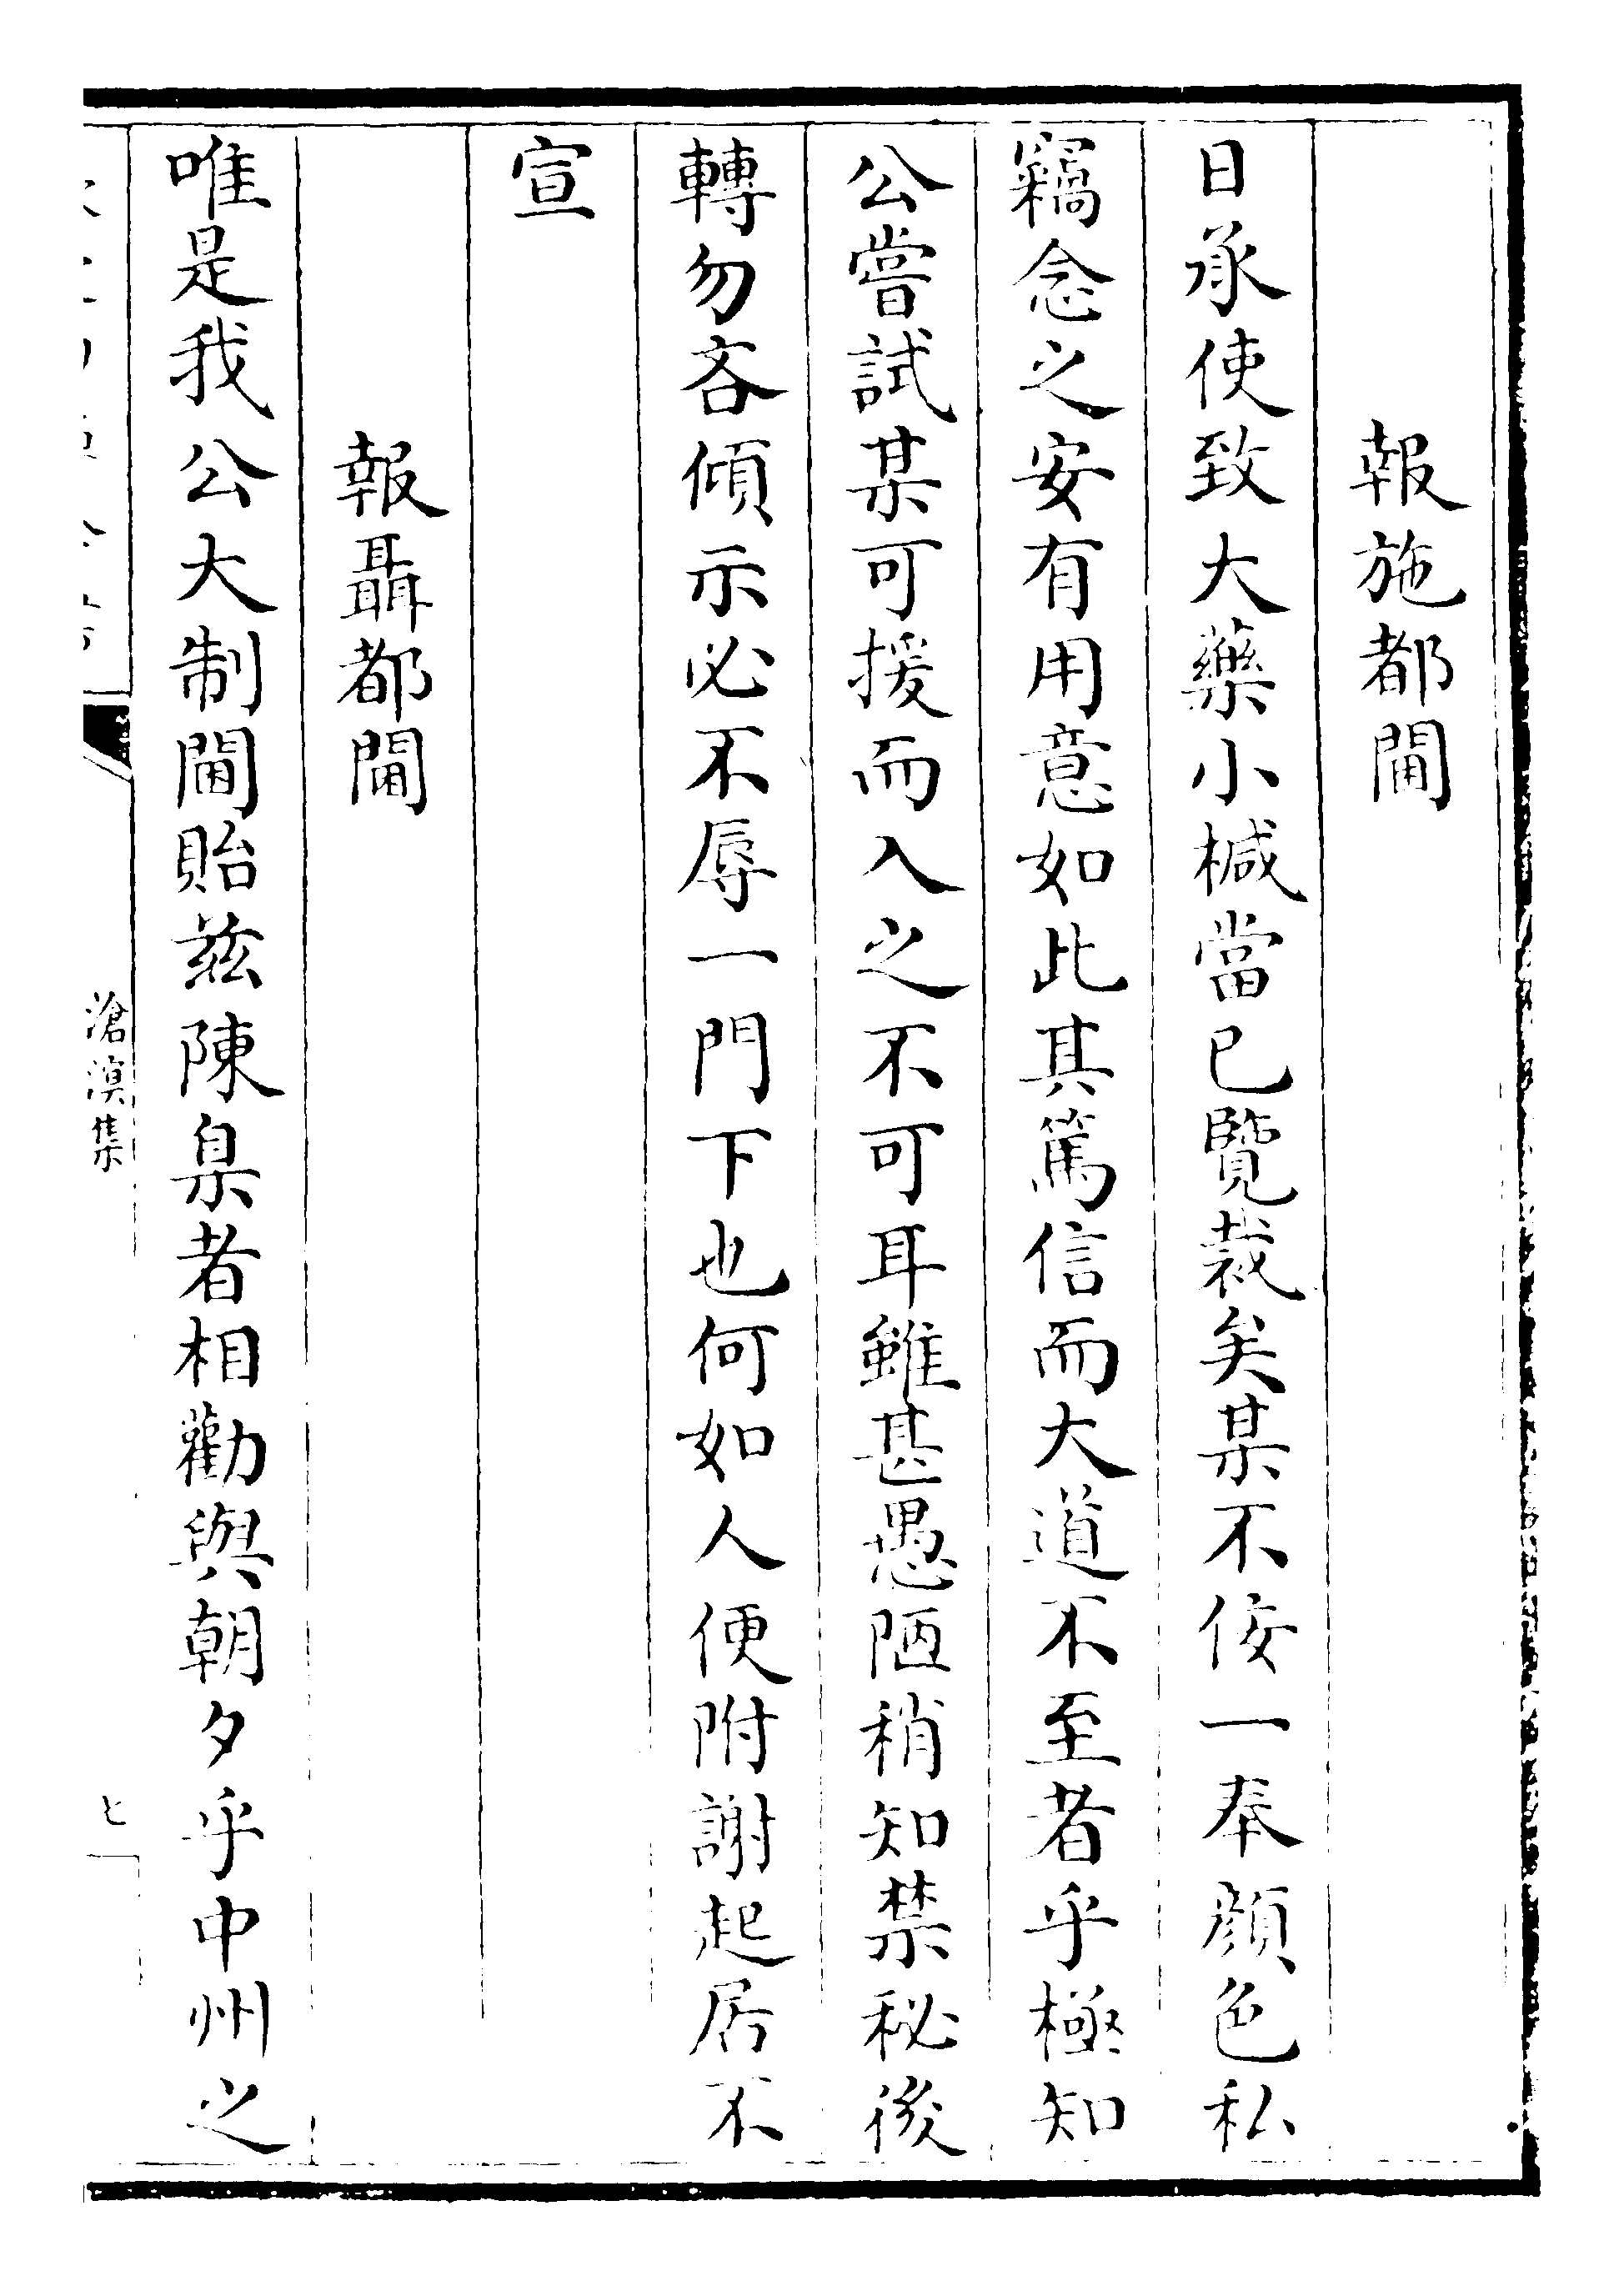 報施都閫
日承使致大藥小椷當已覽裁矣某不佞一奉顔色私
竊念之安有用意如此其篤信而大道不至者乎極知
公嘗試某可援而入之不可耳雖甚愚陋稍知禁秘後
轉勿吝傾示必不辱一門下也何如人便附謝起居不
宣
報聶都閫
唯是我公大制閫貽兹陳臬者相勸與朝夕乎中州之
滄溟集
七